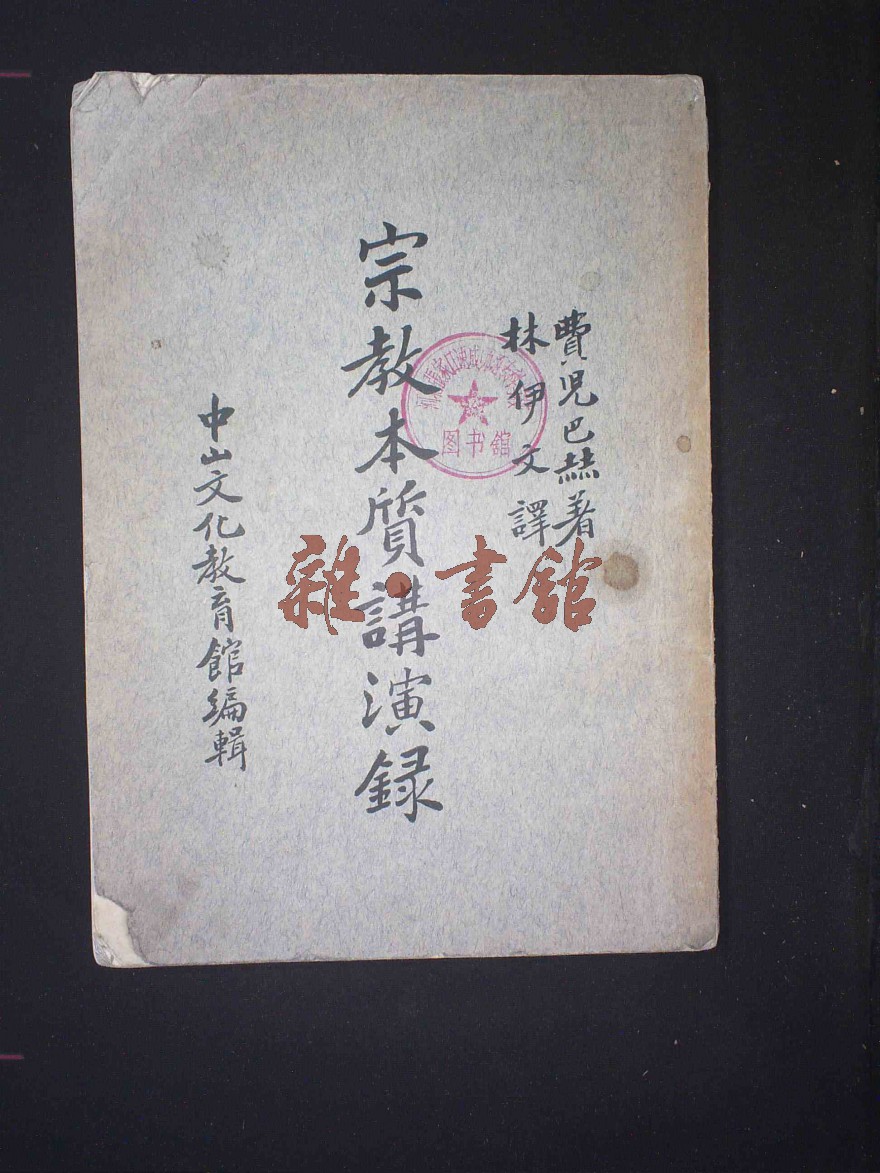 費児巴赫著
林伊文譯
宗教本質講演録
中山文化教育館編輯
图书馆
雜·書館